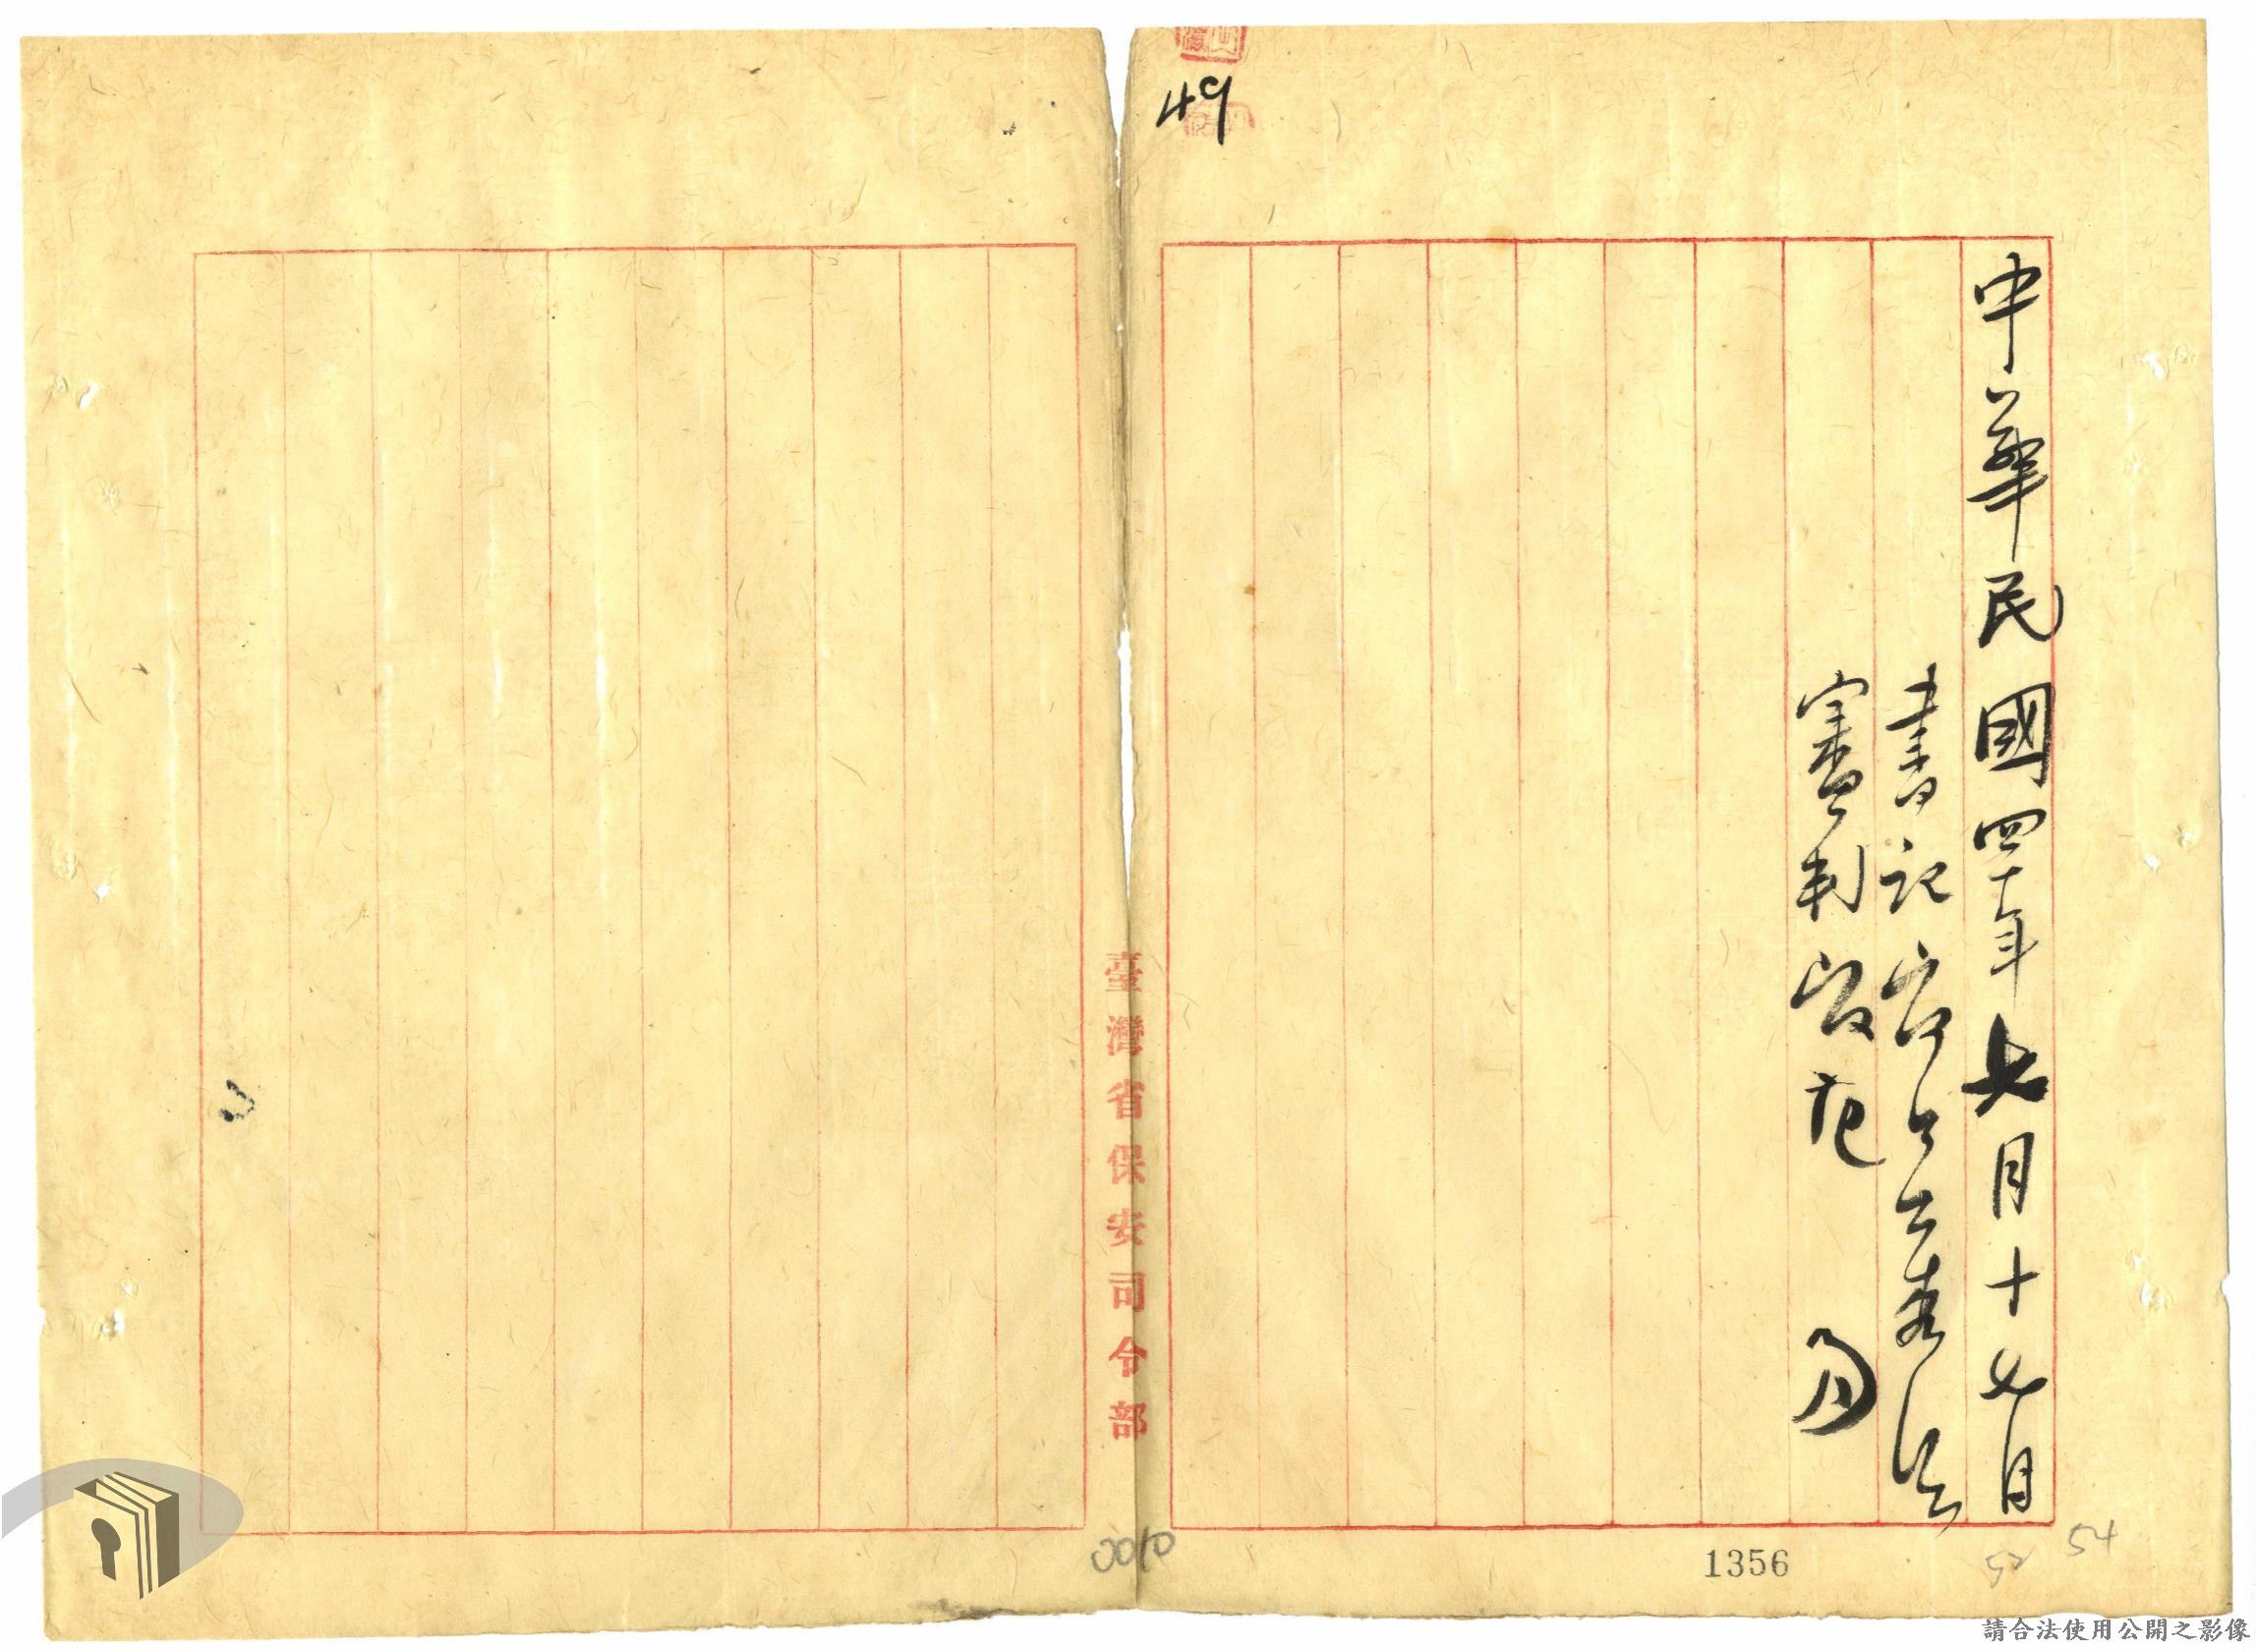 49
中華民國四十年七月十七日
書記官
審判官
臺灣省保安司令部
0010
1356
52
54
請合法使用公開之影像